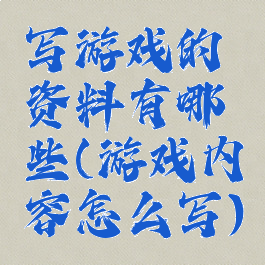 写游戏的
资料有哪
些(游戏内
容怎么写)